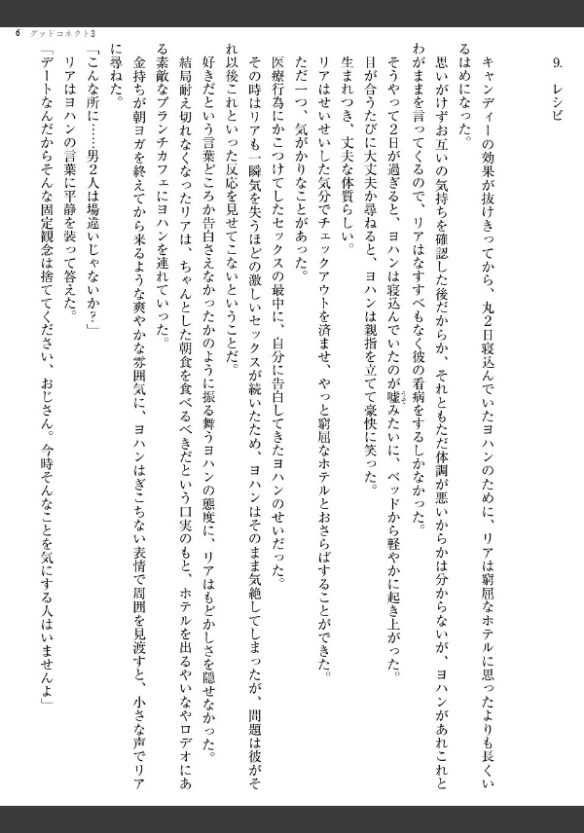 6 グッドコネクト3
9. レシピ
キャンディーの効果が抜けきってから、丸2日寝込んでいたヨハンのために、リアは窮屈なホテルに思ったよりも長くい
るはめになった。
思いがけずお互いの気持ちを確認した後だからか、それともただ体調が悪いからかは分からないが、ヨハンがあれこれと
わがままを言ってくるので、リアはなすすべもなく彼の看病をするしかなかった。
そうやって2日が過ぎると、ヨハンは寝込んでいたのが嘘みたいに、ベッドから軽やかに起き上がった。
目が合うたびに大丈夫か尋ねると、ヨハンは親指を立てて豪快に笑った。
生まれつき、丈夫な体質らしい。
リアはせいせいした気分でチェックアウトを済ませ、やっと窮屈なホテルとおさらばすることができた。
ただ一つ、気がかりなことがあった。
医療行為にかこつけてしたセックスの最中に、自分に告白してきたヨハンのせいだった。
その時はリアも一瞬気を失うほどの激しいセックスが続いたため、ヨハンはそのまま気絶してしまったが、問題は彼がそ
れ以後これといった反応を見せてこないということだ。
好きだという言葉どころか告白さえなかったかのように振る舞うヨハンの態度に、リアはもどかしさを隠せなかった。
結局耐え切れなくなったリアは、ちゃんとした朝食を食べるべきだという口実のもと、ホテルを出るやいなやロデオにあ
る素敵なブランチカフェにヨハンを連れていった。
金持ちが朝ヨガを終えてから来るような爽やかな雰囲気に、ヨハンはぎこちない表情で周囲を見渡すと、小さな声でリア
に尋ねた。
「こんな所に……男2人は場違いじゃないか?」
リアはヨハンの言葉に平静を装って答えた。
「デートなんだからそんな固定観念は捨ててください、おじさん。今時そんなことを気にする人はいませんよ」